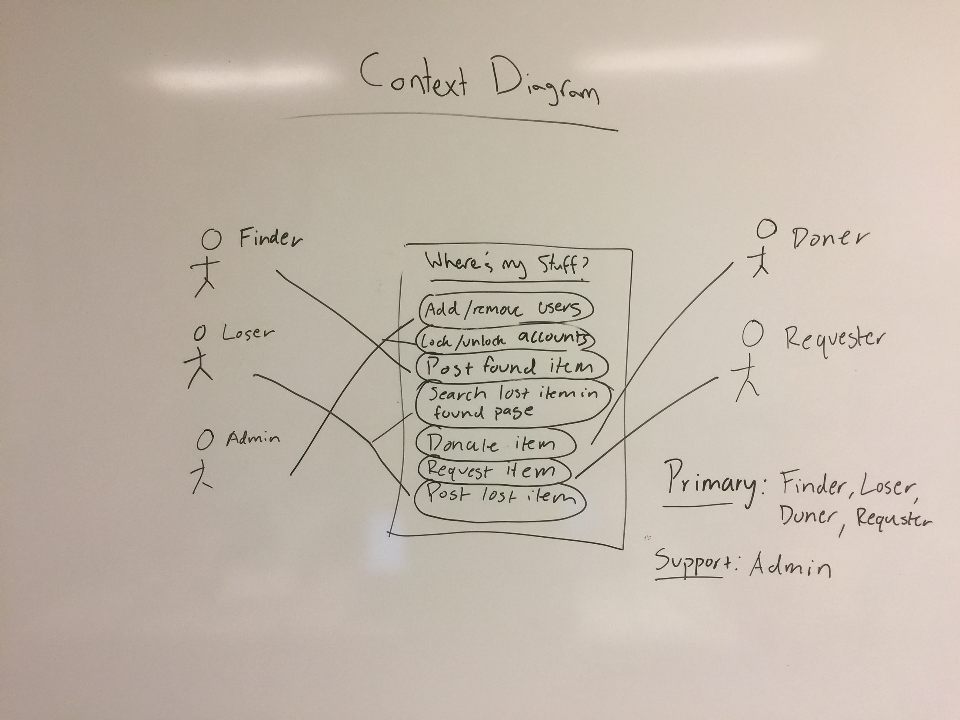 Context Diagram
Finder
Loser
Admin
Where's my Stuff?
Add/remove users
Lock/unlock accounts
Post found item
Search lost item in
found page
Donate item
Request item
Post lost item
Doner
Requester
Primary: Finder, Loser,
Duner, Requster
Support: Admin